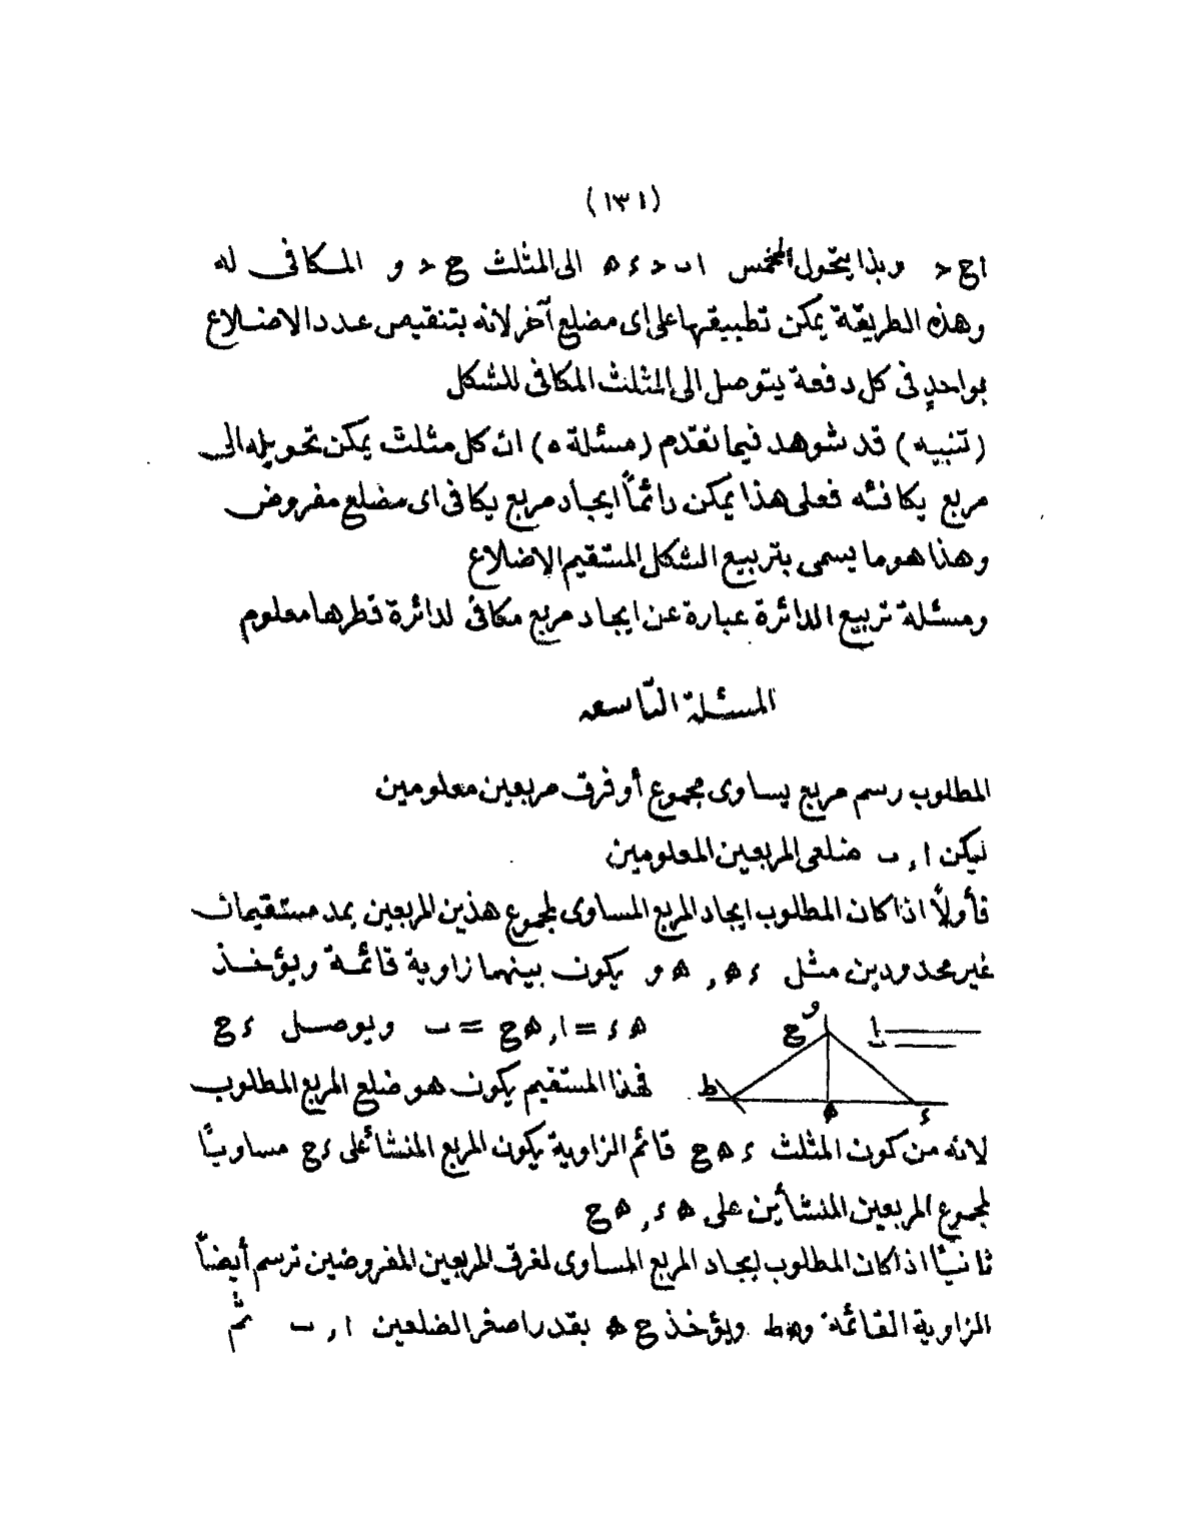 (١٣١)
اح ﺣ وبذا يتحول المخمس ا ب ﺣ ء ه الى المثلث ح ﺣ و المكافى له
وهذه الطريقة يمكن تطبيقها على اى مضلع آخر لانه بتنقيص عدد الاضلاع
بواحدٍ فى كل دفعة يتوصل الى المثلث المكافى للشكل
(تنبيه) قد شوهد فيما تقدم (مسئلة ٥) ان كل مثلث يمكن تحويله الى
مربع يكافئه فعلى هذا يمكن دائماً ايجاد مربع يكافى اى مضلع مفروض
وهذا هو ما يسمى بتربيع الشكل المستقيم الاضلاع
ومسئلة تربيع الدائرة عبارة عن ايجاد مربع مكافئ لدائرة قطرها معلوم
المسئلة التّاسعه
المطلوب رسم مربع يساوى مجموع أو فرق مربعين معلومين
ليكن ا , ب ضلعى المربعين المعلومين
فأولاً اذا كان المطلوب ايجاد المربع المساوى لمجموع هذين المربعين يمد مستقيمان
غير محدودين مثل ء ه , ه و يكون بينهما زاوية قائمة ويؤخذ
ه ء = ا , ه ح = ب ويوصل ء ح
فهذا المستقيم يكون هو ضلع المربع المطلوب
ا
ب
و
ح
ط
ه
ء
لانه من كون المثلث ء ه ح قائم الزاوية يكون المربع المنشأ على ء ح مساوياً
لمجموع المربعين المنشأين على ه ء , ه ح
ثانياً اذا كان المطلوب ايجاد المربع المساوى لفرق المربعين المفروضين ترسم أيضاً
الزاوية القائمة و ه ط ويؤخذ ح ه بقدر اصغر الضلعين ا , ب ثم